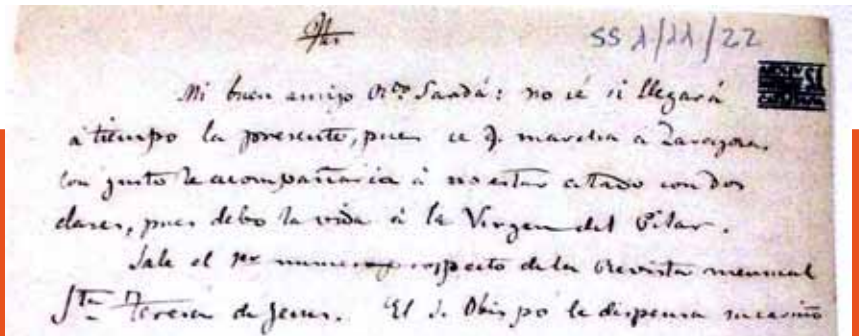 SS 1/11/22
Mi buen amigo Sardá: no sé si llegará
á tiempo la presente, pues se marcha a Zaragoza
Con gusto le acompañaria á no estar atado con dos
clases, pues debo la vida á la Virgen del Pilar.
Sale el 1er numero de la Revista mensual
Sta Teresa de Jesus. El S. Obispo le dispensa su cariño